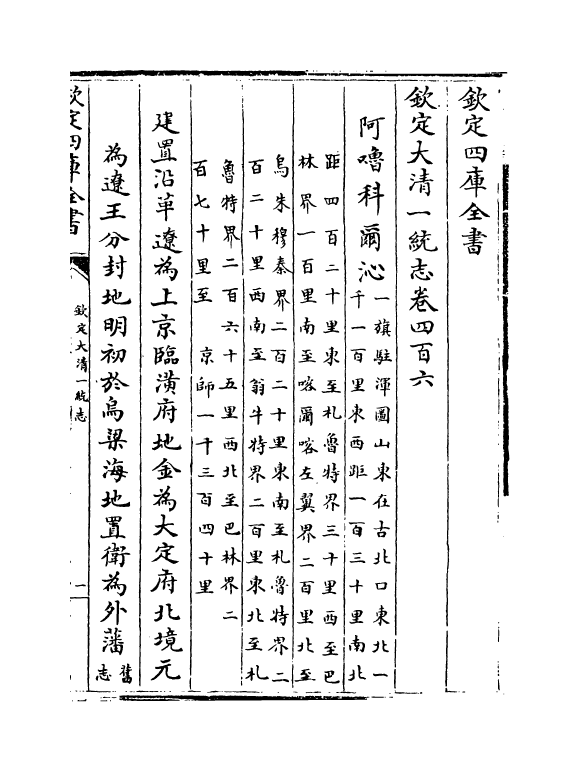 欽定四庫全書
欽定大清一統志卷四百六
阿嚕科爾沁
一旗駐渾圖山東在古北口東北一
千一百里東西距一百三十里南北
距四百二十里東至札魯特界三十里西至巴
林界一百里南至喀爾喀左翼界二百里北至
烏朱穆秦界二百二十里東南至札魯特界二
百二十里西南至翁牛特界二百里東北至札
魯特界二百六十五里西北至巴林界二
百七十里至 京師一千三百四十里
建置沿革遼為上京臨潢府地金為大定府北境元
為遼王分封地明初於烏梁海地置衛為外藩
舊
志
欽定四庫全書
欽定大清一統志
一